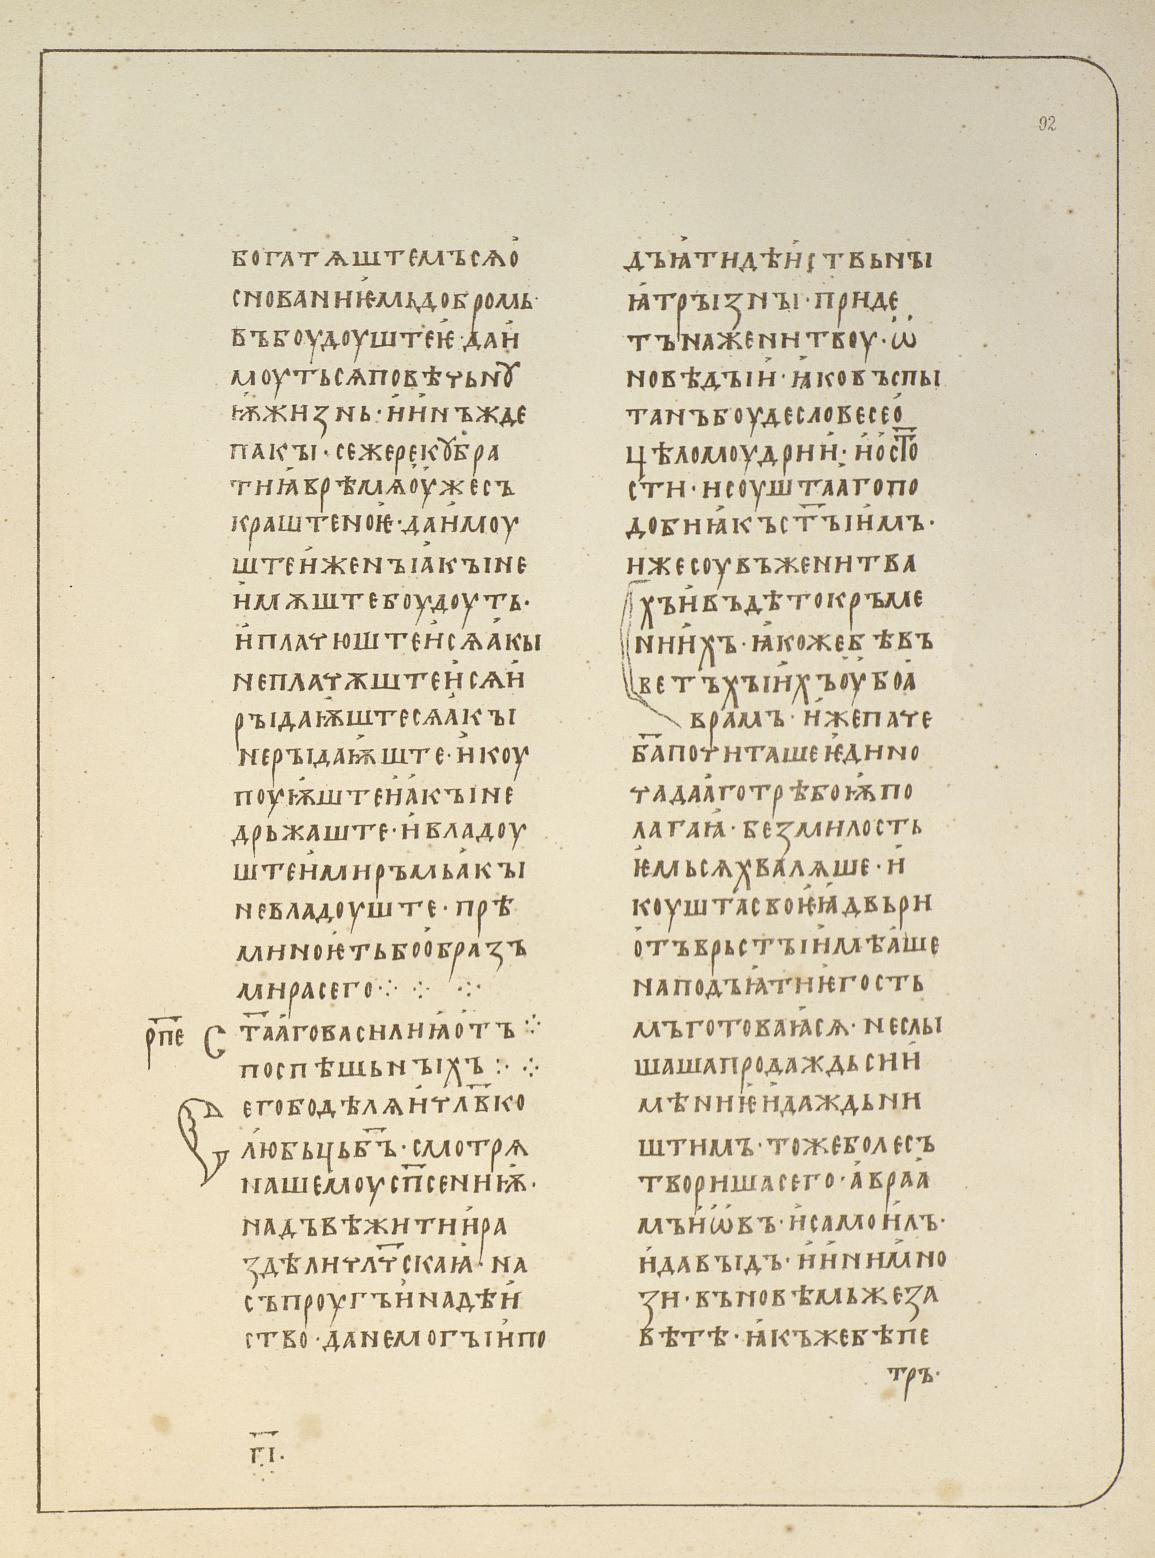 92
богатѧштемъсѧо
снованиѥмьдобромь·
въбоудоуштеѥ·даи
моутьсѧповѣчьнꙋ
ѭжизнь·иинъжде
пакꙑ·сежерекꙋбра
тиꙗврѣмѧоужесъ
краштеноѥ·даимоу
штеиженꙑакꙑне
имѫштебоудоуть·
иплачюштеисѧакы
неплачѫштеисѧи
рꙑдаѭштесѧакꙑ
нерꙑдаѭште·икоу
поуѭштеиакꙑне
дрьжаште·ивладоу
штеимиръмьакꙑ
невладоуште·прѣ
миноѥтьбообразъ
мирасего⁘ ⁘ ⁘
р҃пе С т҃аагоасилиꙗотъ ⁘
поспѣшьнꙑхъ ⁘ ⁘
Єгободѣлѧичл҃вко
любьцьб҃ъ·смотрѧ
нашемоусп҃сениѭ·
надъвѣжитиира
здѣличл҃чскаꙗ·на
съпроугъинадѣи
ство·данемогꙑипо
г҃і·
дъꙗтидѣиствьнꙑ
ꙗтрꙑзнꙑ·приде
тънаженитвоу·ѡ
новѣдꙑи·ꙗковъспы
танъбоудесловесео
цѣломоудрии·иост҃о
сти·исоуштаагопо
добиꙗкъст҃ꙑимъ·
ижесоувъженитва
хъивъдѣтокръме
ниихъ·ꙗкожебѣвъ
ветъхꙑихъоубоа
врамъ·ижепаче
б҃апочиташеѥдино
чадааготрѣбоѭпо
лагаꙗ·безмилость
ѥмьсѧхвалѧше·и
коуштасвоѥꙗдвьри
отъврьстꙑимѣаше
наподъꙗтиѥгость
мъготоваꙗсѧ·неслы
шашапродаждьсии
мѣниѥидаждьни
штимъ·тожеболесъ
творишасего·авраа
мъиѡвъ·исамоилъ·
идавꙑдъ·иинимно
зи·вьновѣмьжеза
вѣтѣ·ꙗкъжебѣпе
тръ·